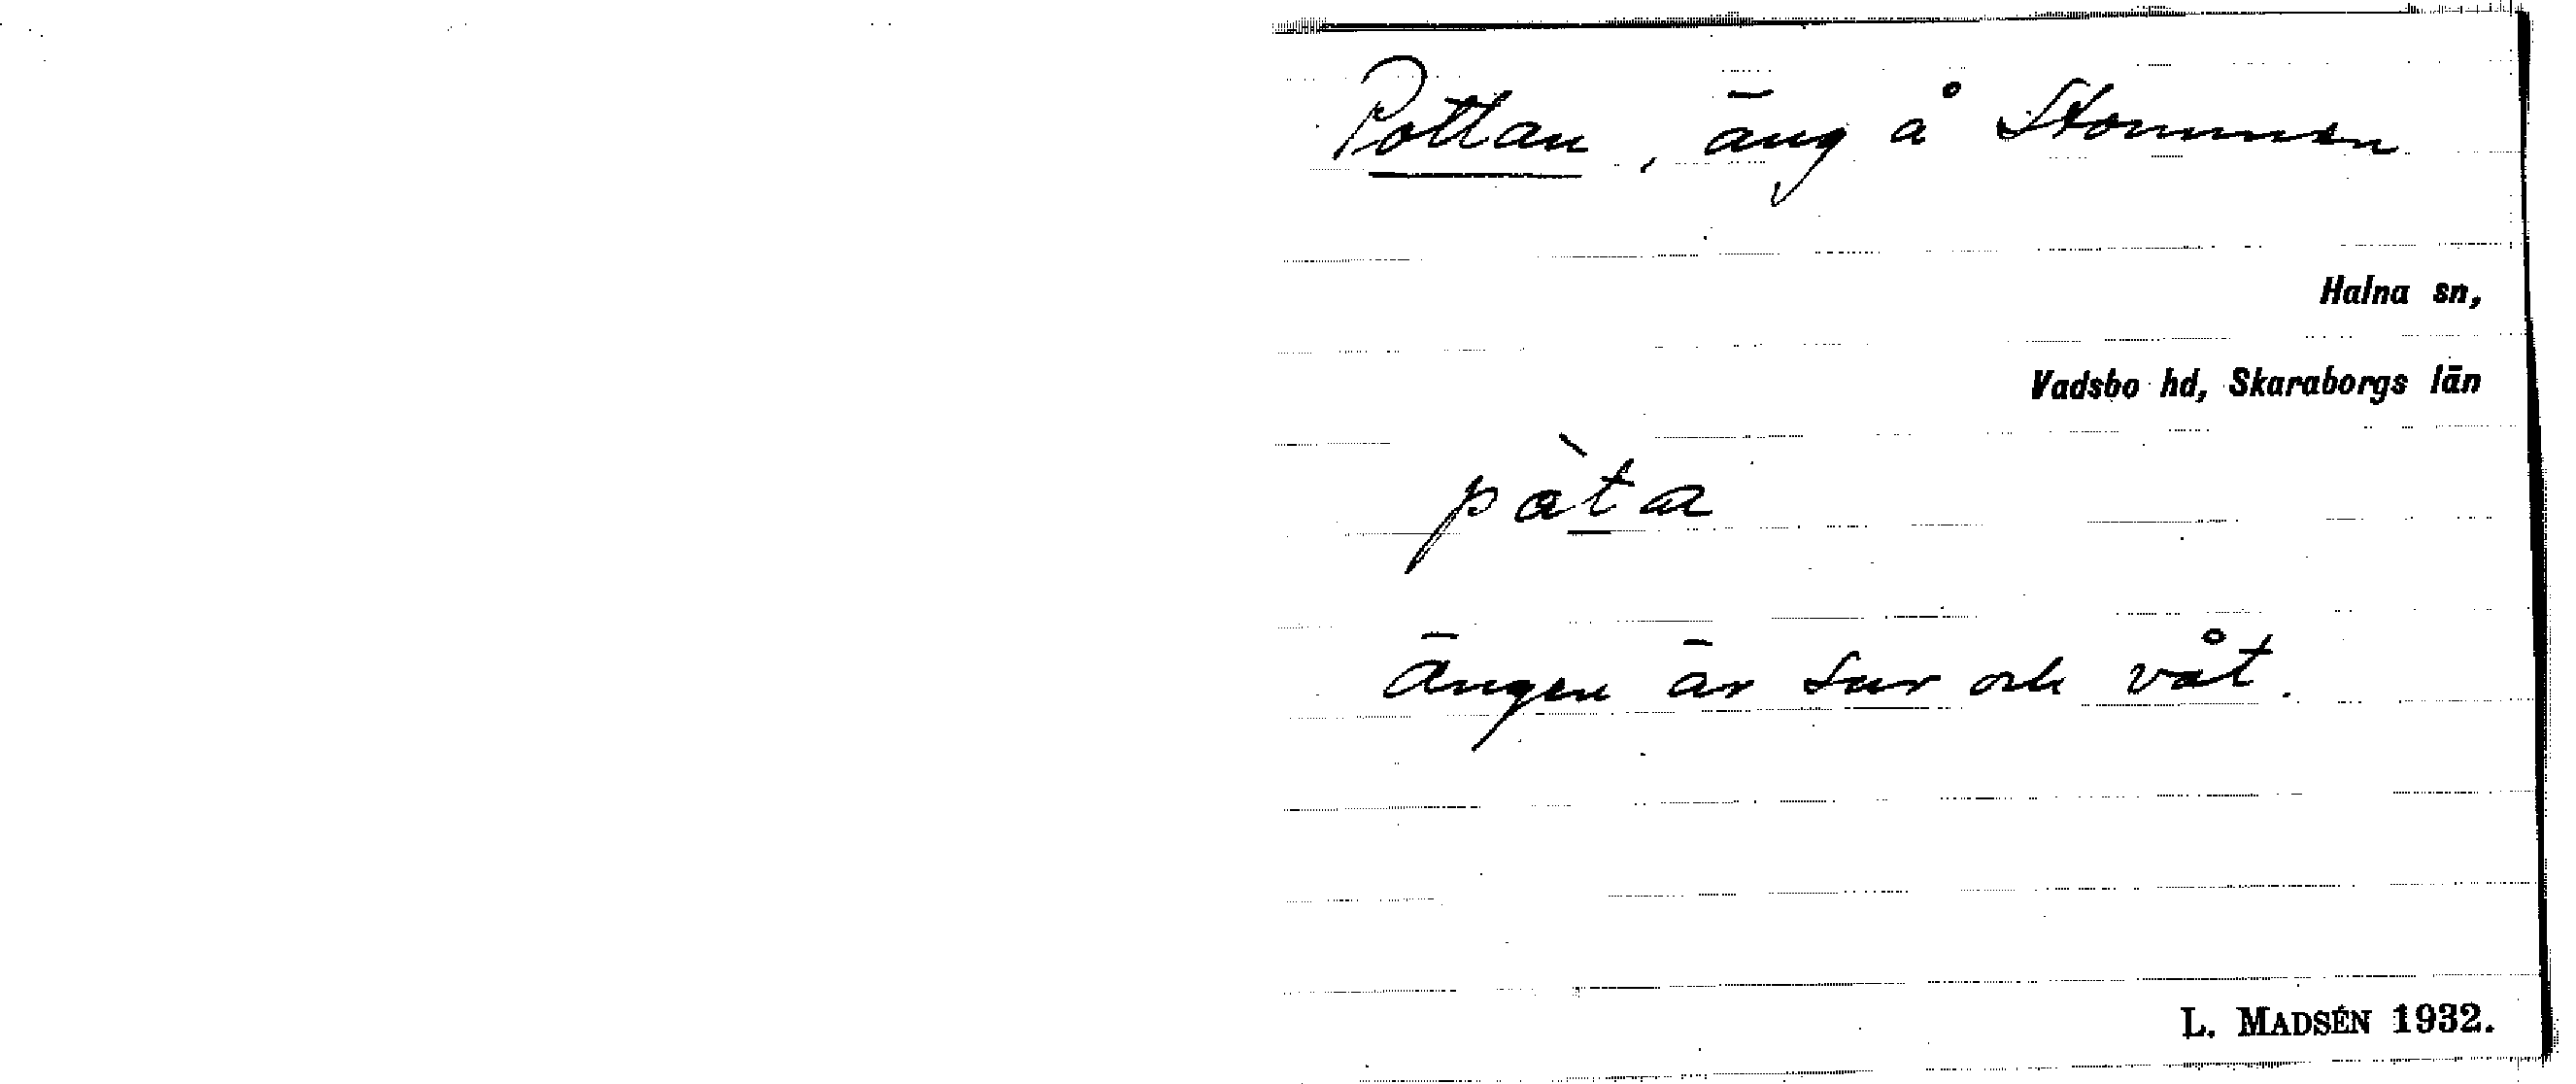 Pottan, äng å Stommen
Halna sn,
Vadsbo hd, Skaraborgs län
pàta
Ängen är sur och våt.
L. MADSÉN 1932.